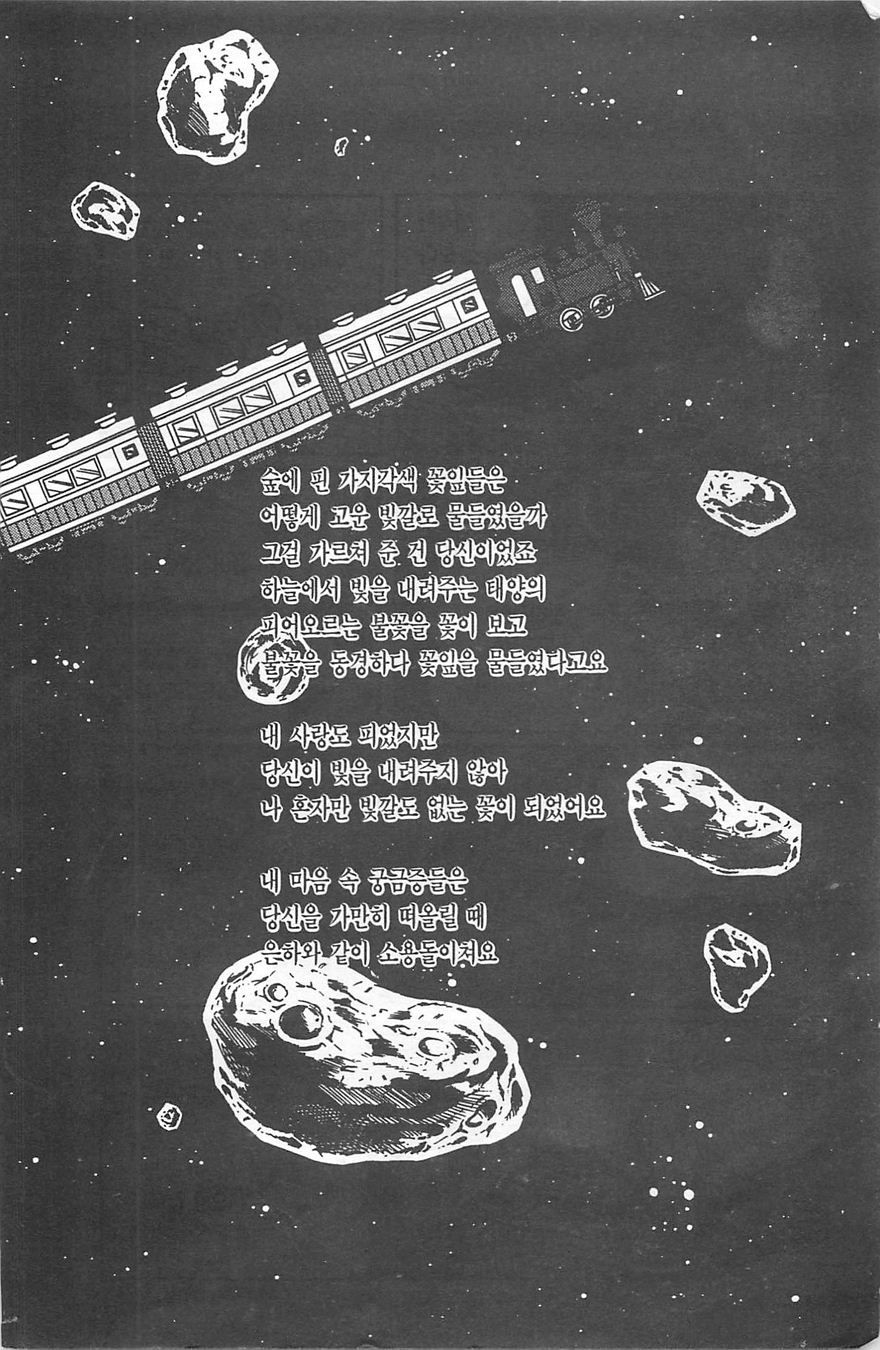 숲에 핀 가지각색 꽃잎들은
어떻게 고운 빛깔로 물들였을까
그걸 가르쳐 준 건 당신이었죠
하늘에서 빛을 내려주는 태양의
피어오르는 불꽃을 꽃이 보고
불꽃을 동경하다 꽃잎을 물들였다고요
내 사랑도 피었지만
당신이 빛을 내려주지 않아
나 혼자만 빛깔도 없는 꽃이 되었어요
내 마음 속 궁금증들은
당신을 가만히 떠올릴 때
은하와 같이 소용돌이쳐요